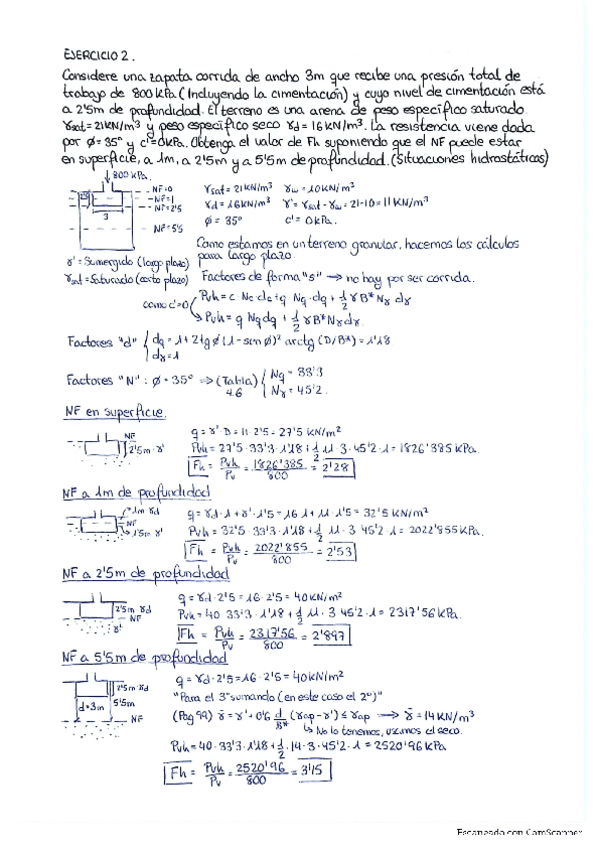 EJERCICIO 2.
Considere una zapata corrida de ancho 3m que recibe una presión total de
trabajo de 800 KPa (Incluyendo la cimentación) y cuyo nivel de cimentación está
a 2'5m de profundidad. El terreno es una arena de peso específico saturado
γsat = 21KN/m³ y peso específico seco γd = 16KN/m³. La resistencia viene dada
por ϕ = 35° y c' = 0KPa. Obtenga el valor de Fh suponiendo que el NF puede estar
en superficie, a 1m, a 2'5m y a 5'5m de profundidad. (Situaciones hidrostáticas)
800 KPa.
NF=0
NF=1
NF=2'5
NF=5'5
3
γsat = 21 KN/m³ γw = 10KN/m³
γd = 16KN/m³ γ' = γsat - γw = 21-10 = 11 KN/m³
ϕ = 35° c' = 0KPa.
Como estamos en un terreno granular, hacemos los cálculos
para largo plazo.
γ' = Sumergido (largo plazo)
γsat = Saturado (corto plazo)
Factores de forma "s" → no hay por ser corrida.
como c'=0 Pvh = c·Nc·dc + q·Nq·dq + 1/2 γ B* Nγ dγ
Pvh = q Nq dq + 1/2 γ B* Nγ dγ.
Factores "d" { dq = 1 + 2 tg ϕ (1 - sen ϕ)² arctg (D/B*) = 1'18
dγ = 1
Factores "N" : ϕ = 35° ⇒ (Tabla) 4.6 { Nq = 33'3
Nγ = 45'2.
NF en superficie.
NF
2'5m·γ'
q = γ'·D = 11·2'5 = 27'5 KN/m²
Pvh = 27'5·33'3·1'18 + 1/2 11·3·45'2·1 = 1826'385 KPa.
Fh = Pvh/Pv = 1826'385/800 = 2'28
NF a 1m de profundidad
1m γd
NF
1'5m γ'
q = γd·1 + γ'·1'5 = 16·1 + 11·1'5 = 32'5 KN/m²
Pvh = 32'5·33'3·1'18 + 1/2 11·3·45'2·1 = 2022'855 KPa.
Fh = Pvh/Pv = 2022'855/800 = 2'53
NF a 2'5m de profundidad
2'5m γd
NF
γ'
q = γd·2'5 = 16·2'5 = 40 KN/m²
Pvh = 40·33'3·1'18 + 1/2 11·3·45'2·1 = 2317'56 KPa.
Fh = Pvh/Pv = 2317'56/800 = 2'897
NF a 5'5m de profundidad
2'5m γd
d=3m 5'5m
NF
q = γd·2'5 = 16·2'5 = 40KN/m²
"Para el 3er sumando (en este caso el 2º)"
(Pag 99) γ̄ = γ' + 0'6 d/B* (γap - γ') ≤ γap → γ̄ = 14 KN/m³
↳ No lo tenemos, usamos el seco.
Pvh = 40·33'3·1'18 + 1/2·14·3·45'2·1 = 2520'96 KPa
Fh = Pvh/Pv = 2520'96/800 = 3'15
Escaneado con CamScanner